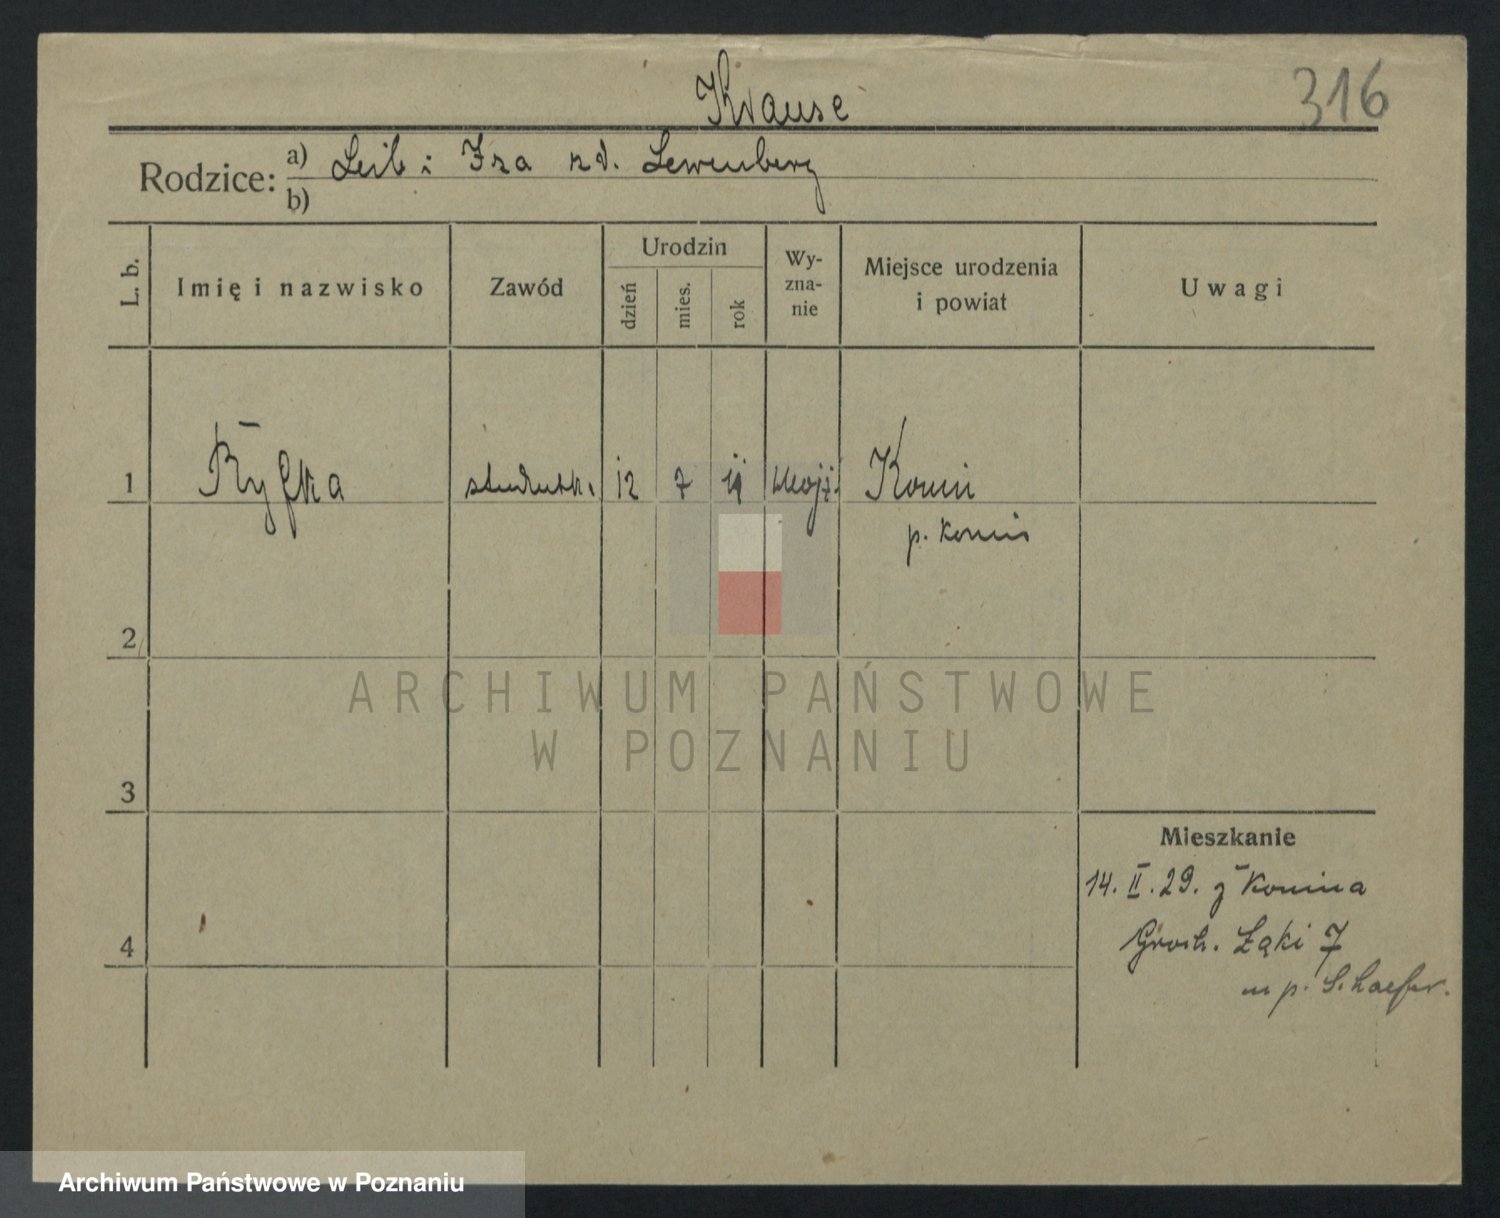 316
Krause
Rodzice: a) Leib i Iza zd. Lewenberg
b)
L. b.
Imię i nazwisko
Zawód
Urodzin
dzień
mies.
rok
Wy-
zna-
nie
Miejsce urodzenia
i powiat
Uwagi
1 Ryfka studentk. 12 7 mojż. Konin
p. Konin
2
3
4
Mieszkanie
14. II. 29. z Konina
Groch. Łąki 7
m p. Schaefer.
ARCHIWUM PAŃSTWOWE
W POZNANIU
Archiwum Państwowe w Poznaniu